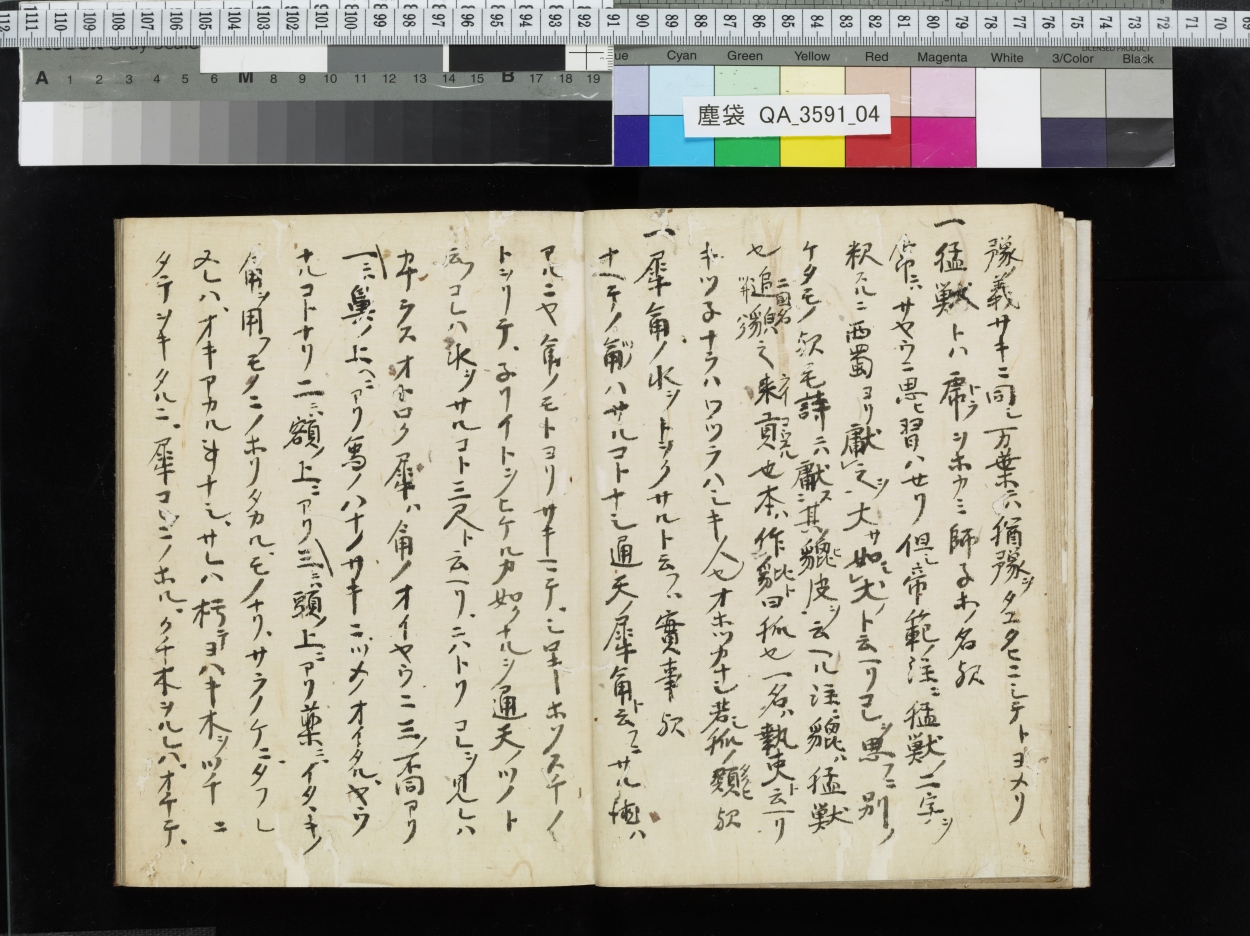 塵袋 QA_3591_04
豫ノ義サキニ同シ万葉ニハ猶豫シタユタヒニシテトヨメリ
一猛獣トハ虎トラヲホカミ師子ホノ名歟
常ニハサヤウニ思ヒ習ハセリ但シ帝範ノ注ニ猛獣ノ二字ヲ
釈スルニ西蜀ヨリ献之ヲ大サ如シ犬ノト云ヘリコレヲ思フニ別ノ
ケタモノ歟毛詩ニハ献ス其貔皮ヲ云ヘル注ニ貔ハ猛獣
也追貊之来貢也本ハ作豼ト曰狐也一名ハ執夷ト云ヘリ
キツ子ナラハワツラハシキ人也オホツカナシ若シ狐ノ類歟
一犀角ノ水ヲトヲクサルト云フハ實事歟
ナヘテノ角ハサルコトナシ通天ノ犀角ト云フニサル徳ハ
アルニヤ角ノモトヨリサキ
トヲリテ
云ク コレハ水ヲサルコト三尺ト云ヘリニハトリコレヲ見レハ
カナラスオトロク犀ハ角ノオイヤウニ三ノ不同アリ
一ニハ鼻ノ上ヘニアリ馬ノハナノサキニツノオイタルヤウ
ナルコトナリ二ニハ額ノ上ニアリ三ニハ頭ノ上ニアリ薬ニハイタヽキノ
角ヲ用フモタニノホリタカルモノナリサラノケニタフレ
又レハオキアカル事ナシサレハ朽テヨハキ木ヲツチニ
タテヲキタルニ犀コヽニノホルクチ木ヲルレハオチテ
A 1 2 3 4 5 6 M 8 9 10 11 12 13 14 15 B 17 18 19
Cyan Green Yellow Red Magenta White 3/Color Black